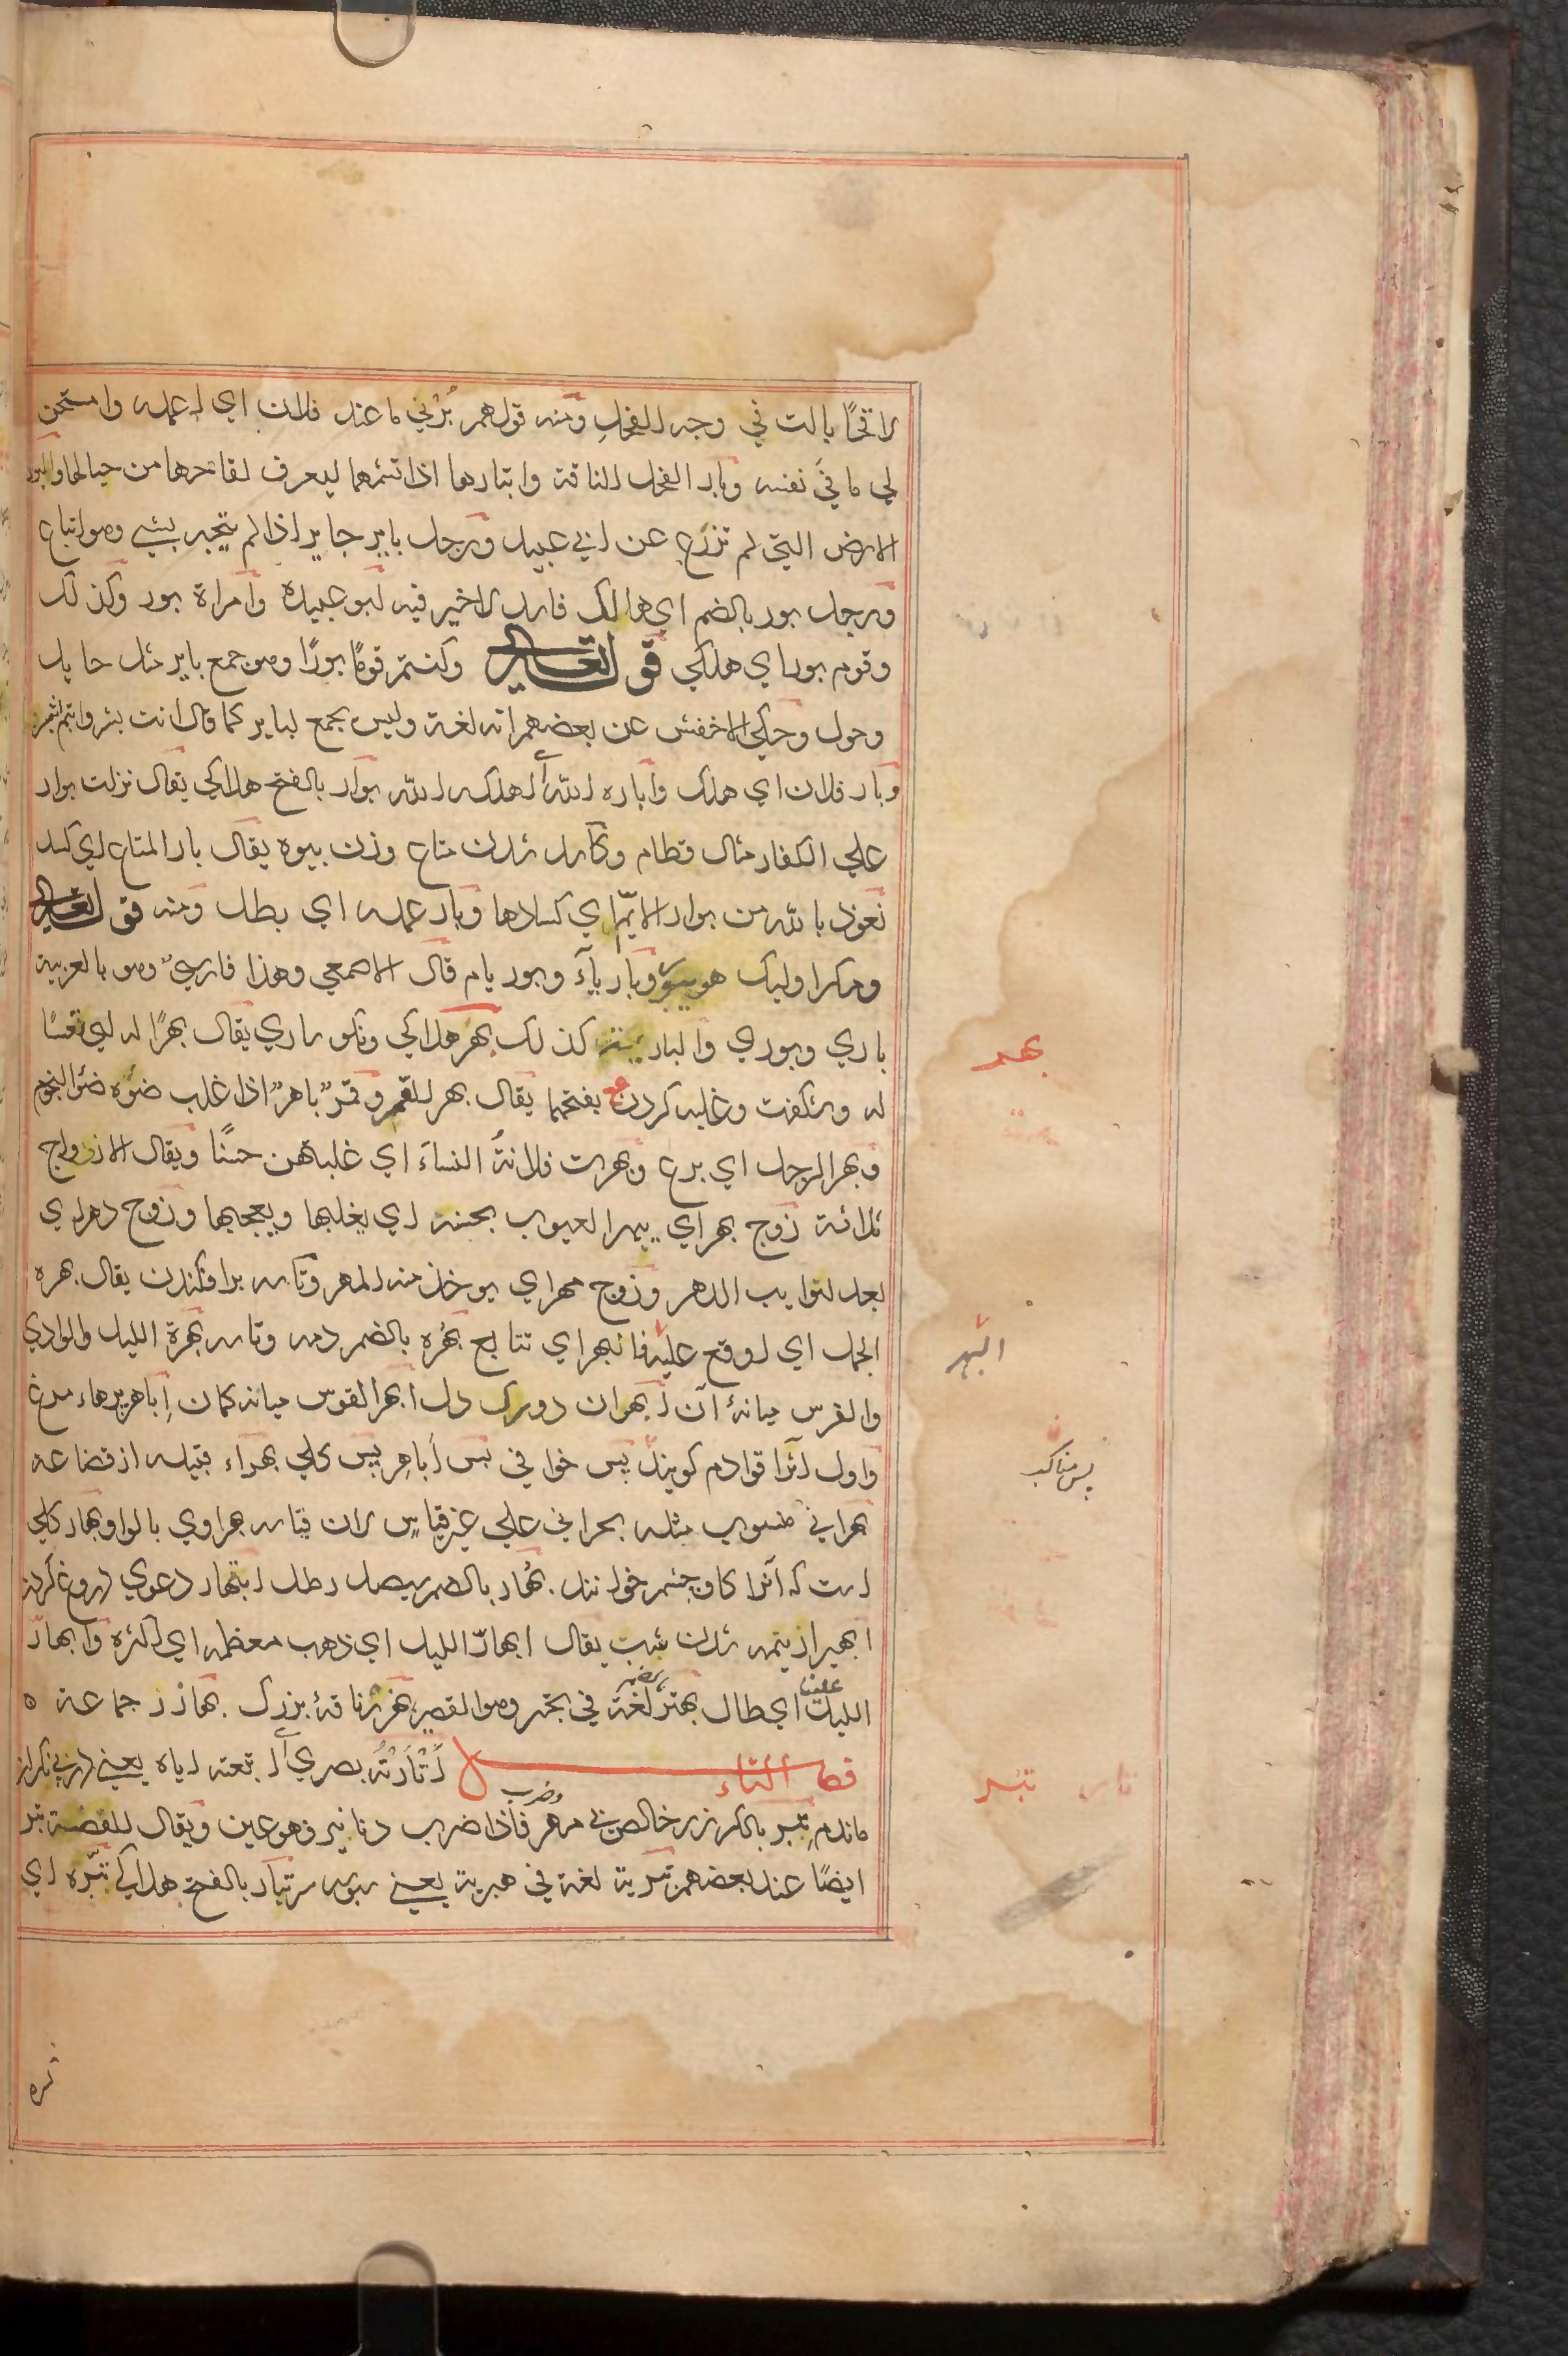 لاقحًا بالت في وجه الفحل ومنه قولهم بُرْلي ما عند فلان اي اعمله وامتحن
لي ما في نفسه وبار الفحل الناقة وابتارها اذا تشمها ليعرف لقاحها من حيالها والبور
الارض التي لم تزرع عن ابي عبيد ورجل باير جاير اذا لم يتجبر بشي وهو اتباع
ورجل بور بالضم اي هالك فاسد لاخير فيه ابو عبيدة وامراة بور وكذلك
وقوم بور اي هلكي قوله تعالى وكنتم قومًا بورًا وهو جمع باير مثل حايل
وحول وحكي الاخفش عن بعضهم انه لغة وليس بجمع لباير كما قال انت بشر وانتم بشر
وبار فلان اي هلك واباره الله اي اهلكه الله بوار بالفتح هلاكي يقال نزلت بوار
علي الكفار مثال قطام وكاسد شدن متاع وزن بيوه يقال بار المتاع اي كسد
نعوذ بالله من بوار الايّم اي كسادها وبار عمله اي بطل ومنه قوله تعالى
ومكر اوليك هو يبور وباريآء وبورياء قال الاصمعي وهذا فارسيّ وهو بالعربية
باري وبوري والبارية كذلك بهر هلاكي ونكوساري يقال بهرًا له اي تعسًا
له وشكفت وغلبه كردن بفتحها يقال بهر القمر وقمرٌ باهرٌ اذا غلب ضوه ضوالنجوم
وبهر الرجل اي برع وبهرت فلانةُ النساءَ اي غلبتهن حسنًا ويقال الازواج
ثلاثة زوج بهر اي يبهر العيون بحسنه اي يغلبها ويعجبها وزوج دهر اي
يعد لنوايب الدهر وزوج مهر اي يوخذ منه المهر وتاسه برافكندن يقال بهره
الحمل اي اوقع عليه فانبهر اي تتابع بهُره بالضم دمه وتاسه بهرة الليل والوادي
والفرس ميانهٔ آن ابهران دورك دل ابهر القوس ميانه كمان اباهر پرهاء مرغ
واول آنرا قوادم كويند پس خوافي پس اَباهِر پس كلي بهراء قبيله از قضاعه
بهراني منسوب مثله بحراني علي غير قياس لان قياسه بهراوي بالواو بهار كلي
است كه آنرا كاوچشم خوانند بُهار بالضم سيصد رطل ابتهار دعوي دروغ كردن
ابهيرار نيمه شدن شب يقال ابهارّ الليل اي ذهب معظمه اي اكثره وابهارّ
علينا
الليل اي طال بهتر لغة في بحتر وهو القصير بهزر ناقهٔ بزرك بهازر جماعة ه
فصل التاء اَتْأَرْتُه بصري اي اتبعته اياه يعني
ماندم تبر بالكسر زر خالص بي مهر فاذا ضرب دنانير فهو عين ويقال للفضة تبر
وضرب
ايضًا عند بعضهم تبرية لغة في هبرية يعني سبوسه سر تبار بالفتح هلاكي تبّره اي
بهر
البهر
پس مناكب
تار تبر
تبره